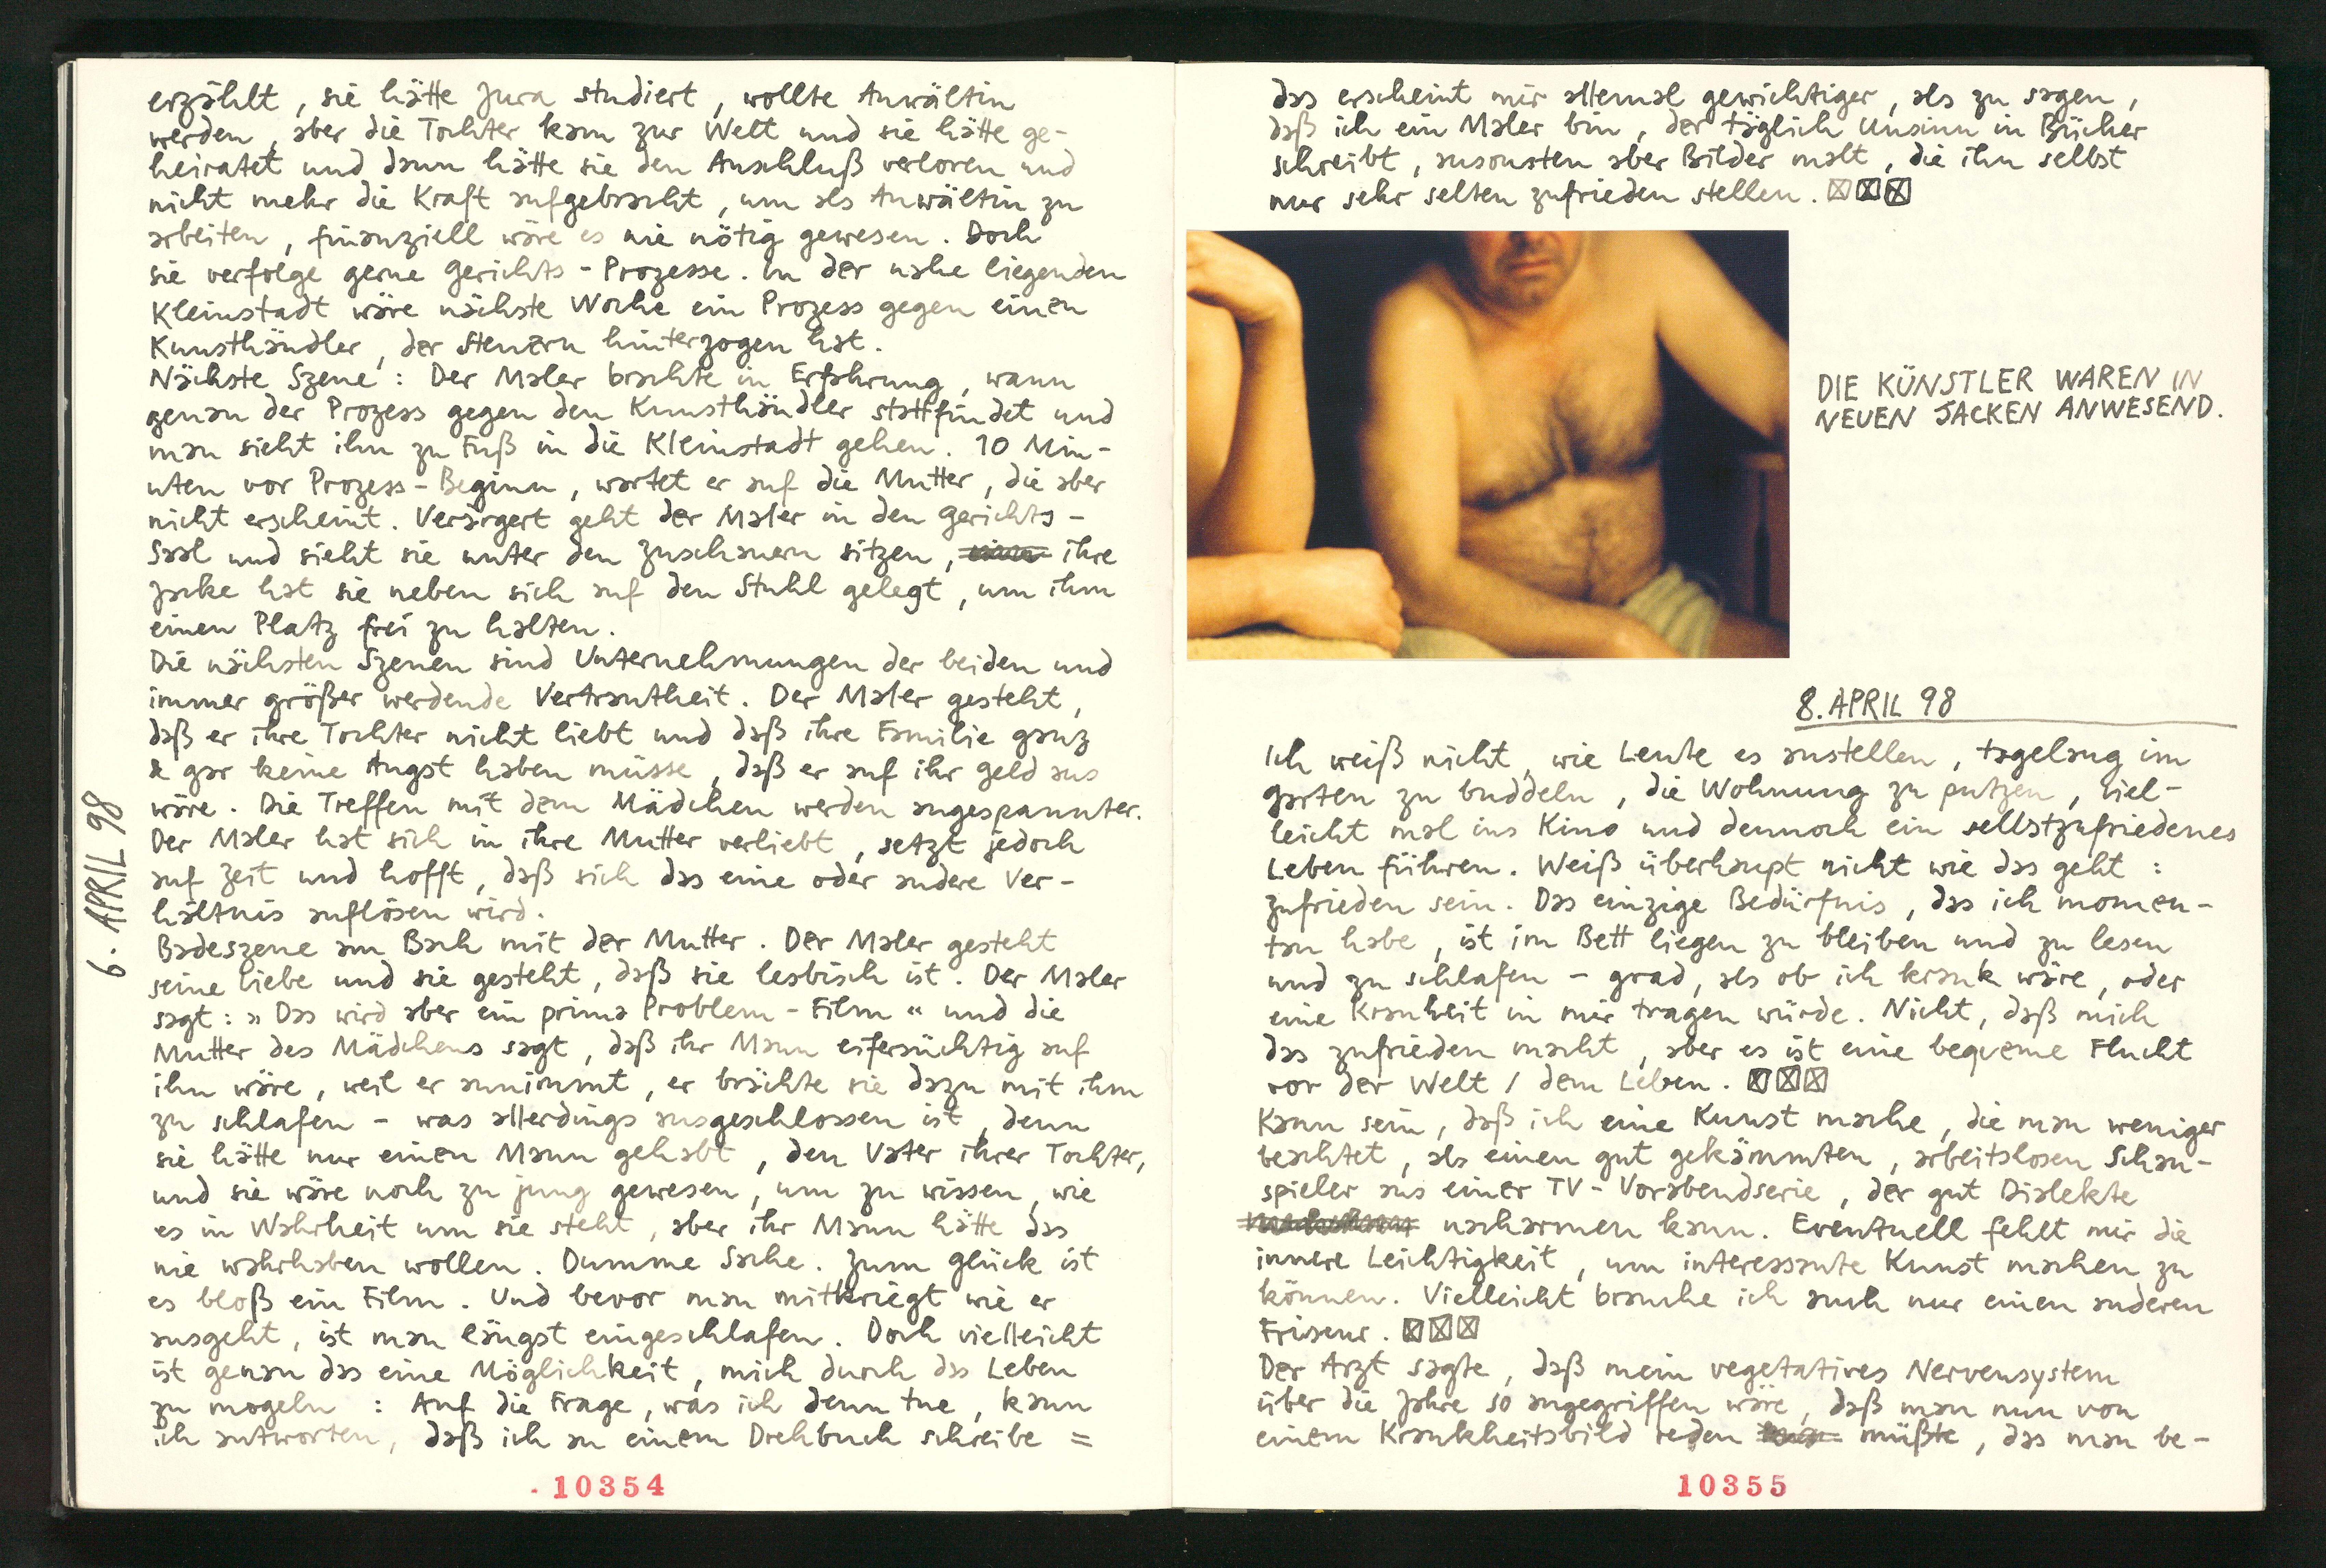 erzählt, sie hätte Jura studiert, wollte Anwältin
werden, aber die Tochter kam zur Welt und sie hätte ge-
heiratet und dann hätte sie den Anschluß verloren und
nicht mehr die Kraft aufgebracht, um als Anwältin zu
arbeiten, finanziell wäre es nie nötig gewesen. Doch
sie verfolge gerne Gerichts-Prozesse. In der nahe liegenden
Kleinstadt wäre nächste Woche ein Prozess gegen einen
Kunsthändler, der Steuern hinterzogen hat.
Nächste Szene: Der Maler brachte in Erfahrung, wann
genau der Prozess gegen den Kunsthändler stattfindet und
man sieht ihn zu Fuß in die Kleinstadt gehen. 10 Min-
uten vor Prozess-Beginn, wartet er auf die Mutter, die aber
nicht erscheint. Verärgert geht der Maler in den Gerichts-
Saal und sieht sie unter den Zuschauern sitzen, ihre
Jacke hat sie neben sich auf den Stuhl gelegt, um ihm
einen Platz frei zu halten.
Die nächsten Szenen sind Unternehmungen der beiden und
immer größer werdende Vertrautheit. Der Maler gesteht,
daß er ihre Tochter nicht liebt und daß ihre Familie ganz
& gar keine Angst haben müsse, daß er auf ihr Geld aus
wäre. Die Treffen mit dem Mädchen werden angespannter.
Der Maler hat sich in ihre Mutter verliebt, setzt jedoch
auf Zeit und hofft, daß sich das eine oder andere Ver-
hältnis auflösen wird.
Badeszene am Bach mit der Mutter. Der Maler gesteht
seine Liebe und sie gesteht, daß sie lesbisch ist. Der Maler
sagt: »Das wird aber ein prima Problem-Film« und die
Mutter des Mädchens sagt, daß ihr Mann eifersüchtig auf
ihn wäre, weil er annimmt, er brächte sie dazu mit ihm
zu schlafen - was allerdings ausgeschlossen ist, denn
sie hätte nur einen Mann gehabt, den Vater ihrer Tochter,
und sie wäre noch zu jung gewesen, um zu wissen, wie
es in Wahrheit um sie steht, aber ihr Mann hätte das
nie wahrhaben wollen. Dumme Sache. Zum Glück ist
es bloß ein Film. Und bevor man mitkriegt wie er
ausgeht, ist man längst eingeschlafen. Doch vielleicht
ist genau das eine Möglichkeit, mich durch das Leben
zu mogeln: Auf die Frage, was ich denn tue, kann
ich antworten, daß ich an einem Drehbuch schreibe =
6. APRIL 98
10354
das erscheint mir allemal gewichtiger, als zu sagen,
daß ich ein Maler bin, der täglich Unsinn in Bücher
schreibt, ansonsten aber Bilder malt, die ihn selbst
nur sehr selten zufrieden stellen.
DIE KÜNSTLER WAREN IN
NEUEN JACKEN ANWESEND.
8. APRIL 98
Ich weiß nicht, wie Leute es anstellen, tagelang im
Garten zu buddeln, die Wohnung zu putzen, viel-
leicht mal ins Kino und dennoch ein selbstzufriedenes
Leben führen. Weiß überhaupt nicht wie das geht:
zufrieden sein. Das einzige Bedürfnis, das ich momen-
tan habe, ist im Bett liegen zu bleiben und zu lesen
und zu schlafen - grad, als ob ich krank wäre, oder
eine Kranheit in mir tragen würde. Nicht, daß mich
das zufrieden macht, aber es ist eine bequeme Flucht
vor der Welt / dem Leben.
Kann sein, daß ich eine Kunst mache, die man weniger
beachtet, als einen gut gekämmten, arbeitslosen Schau-
spieler aus einer TV-Vorabendserie, der gut Dialekte
nachahmen kann. Eventuell fehlt mir die
innere Leichtigkeit, um interessante Kunst machen zu
können. Vielleicht brauche ich auch nur einen anderen
Friseur.
Der Arzt sagte, daß mein vegetatives Nervensystem
über die Jahre so angegriffen wäre, daß man nun von
einem Krankheitsbild reden müßte, das man be-
10355